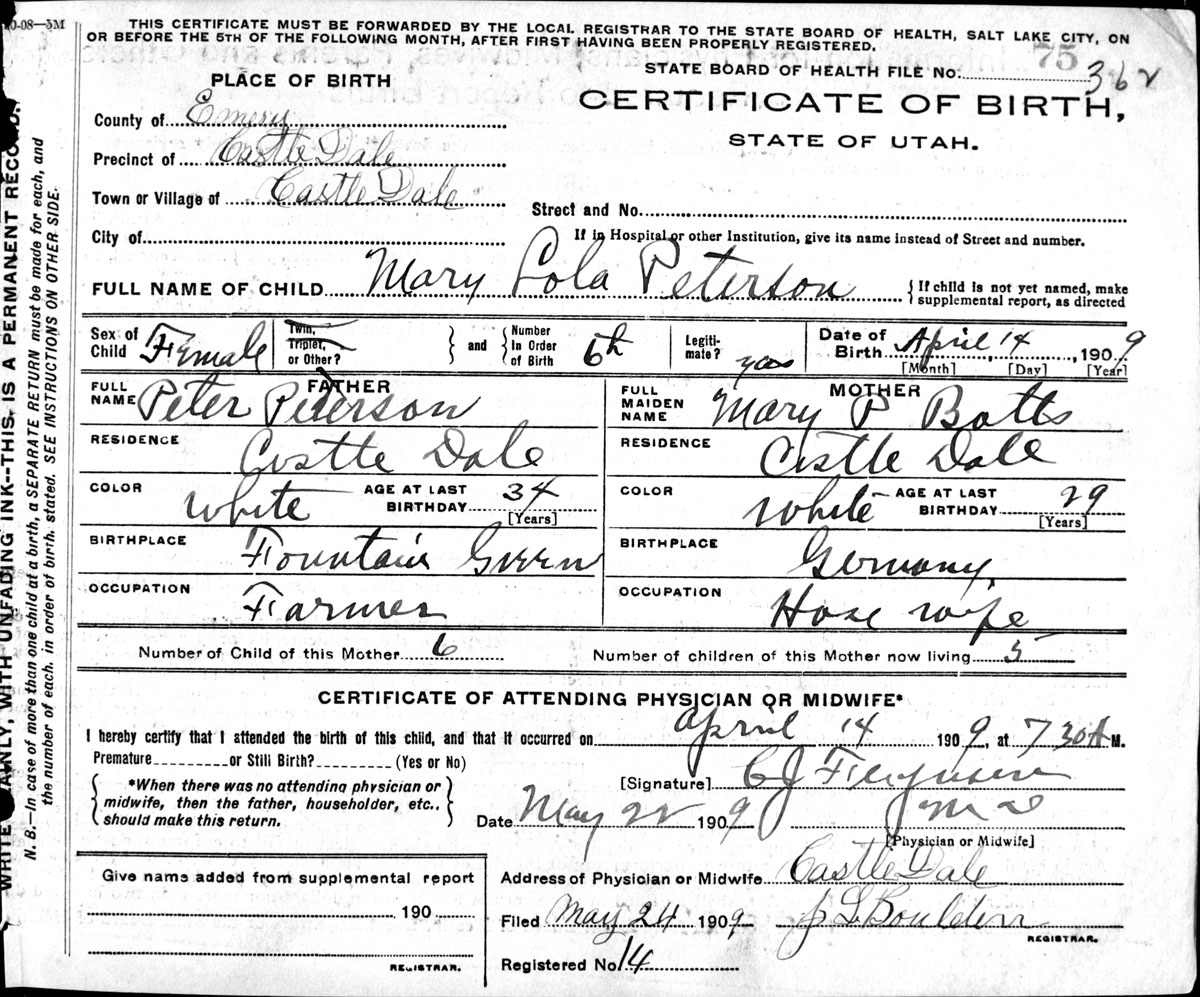 0-08—5M
THIS CERTIFICATE MUST BE FORWARDED BY THE LOCAL REGISTRAR TO THE STATE BOARD OF HEALTH, SALT LAKE CITY, ON
OR BEFORE THE 5TH OF THE FOLLOWING MONTH, AFTER FIRST HAVING BEEN PROPERLY REGISTERED.
75
PLACE OF BIRTH
STATE BOARD OF HEALTH FILE No: 362
CERTIFICATE OF BIRTH,
STATE OF UTAH.
County of Emery
Precinct of Castle Dale
Town or Village of Castle Dale
Street and No.
City of
If in Hospital or other Institution, give its name instead of Street and number.
FULL NAME OF CHILD Mary Lola Peterson
{ If child is not yet named, make
supplemental report, as directed
Sex of Child Female
Twin, Triplet, or Other?
} and {
Number In Order of Birth 6th
Legiti-mate? yes
Date of Birth April 14, 1909
[Month] [Day] [Year]
FATHER
FULL NAME Peter Peterson
MOTHER
FULL MAIDEN NAME Mary P Botts
RESIDENCE Castle Dale
RESIDENCE Castle Dale
COLOR white AGE AT LAST BIRTHDAY 34 [Years]
COLOR white AGE AT LAST BIRTHDAY 29 [Years]
BIRTHPLACE Fountain Green
BIRTHPLACE Germany
OCCUPATION Farmer
OCCUPATION Hose wife
Number of Child of this Mother 6
Number of children of this Mother now living 5
CERTIFICATE OF ATTENDING PHYSICIAN OR MIDWIFE*
I hereby certify that I attended the birth of this child, and that it occurred on April 14 1909, at 7 30 A M.
Premature or Still Birth? (Yes or No)
{ *When there was no attending physician or
midwife, then the father, householder, etc.,
should make this return. }
[Signature] C J Ferguson
M D
Date May 22 1909
[Physician or Midwife]
Address of Physician or Midwife Castle Dale
Give name added from supplemental report
190
REGISTRAR.
Filed May 24 1909
REGISTRAR.
Registered No 14
WRITE PLAINLY, WITH UNFADING INK--THIS IS A PERMANENT RECORD.
N. B.—In case of more than one child at a birth, a SEPARATE RETURN must be made for each, and
the number of each, in order of birth, stated. SEE INSTRUCTIONS ON OTHER SIDE.